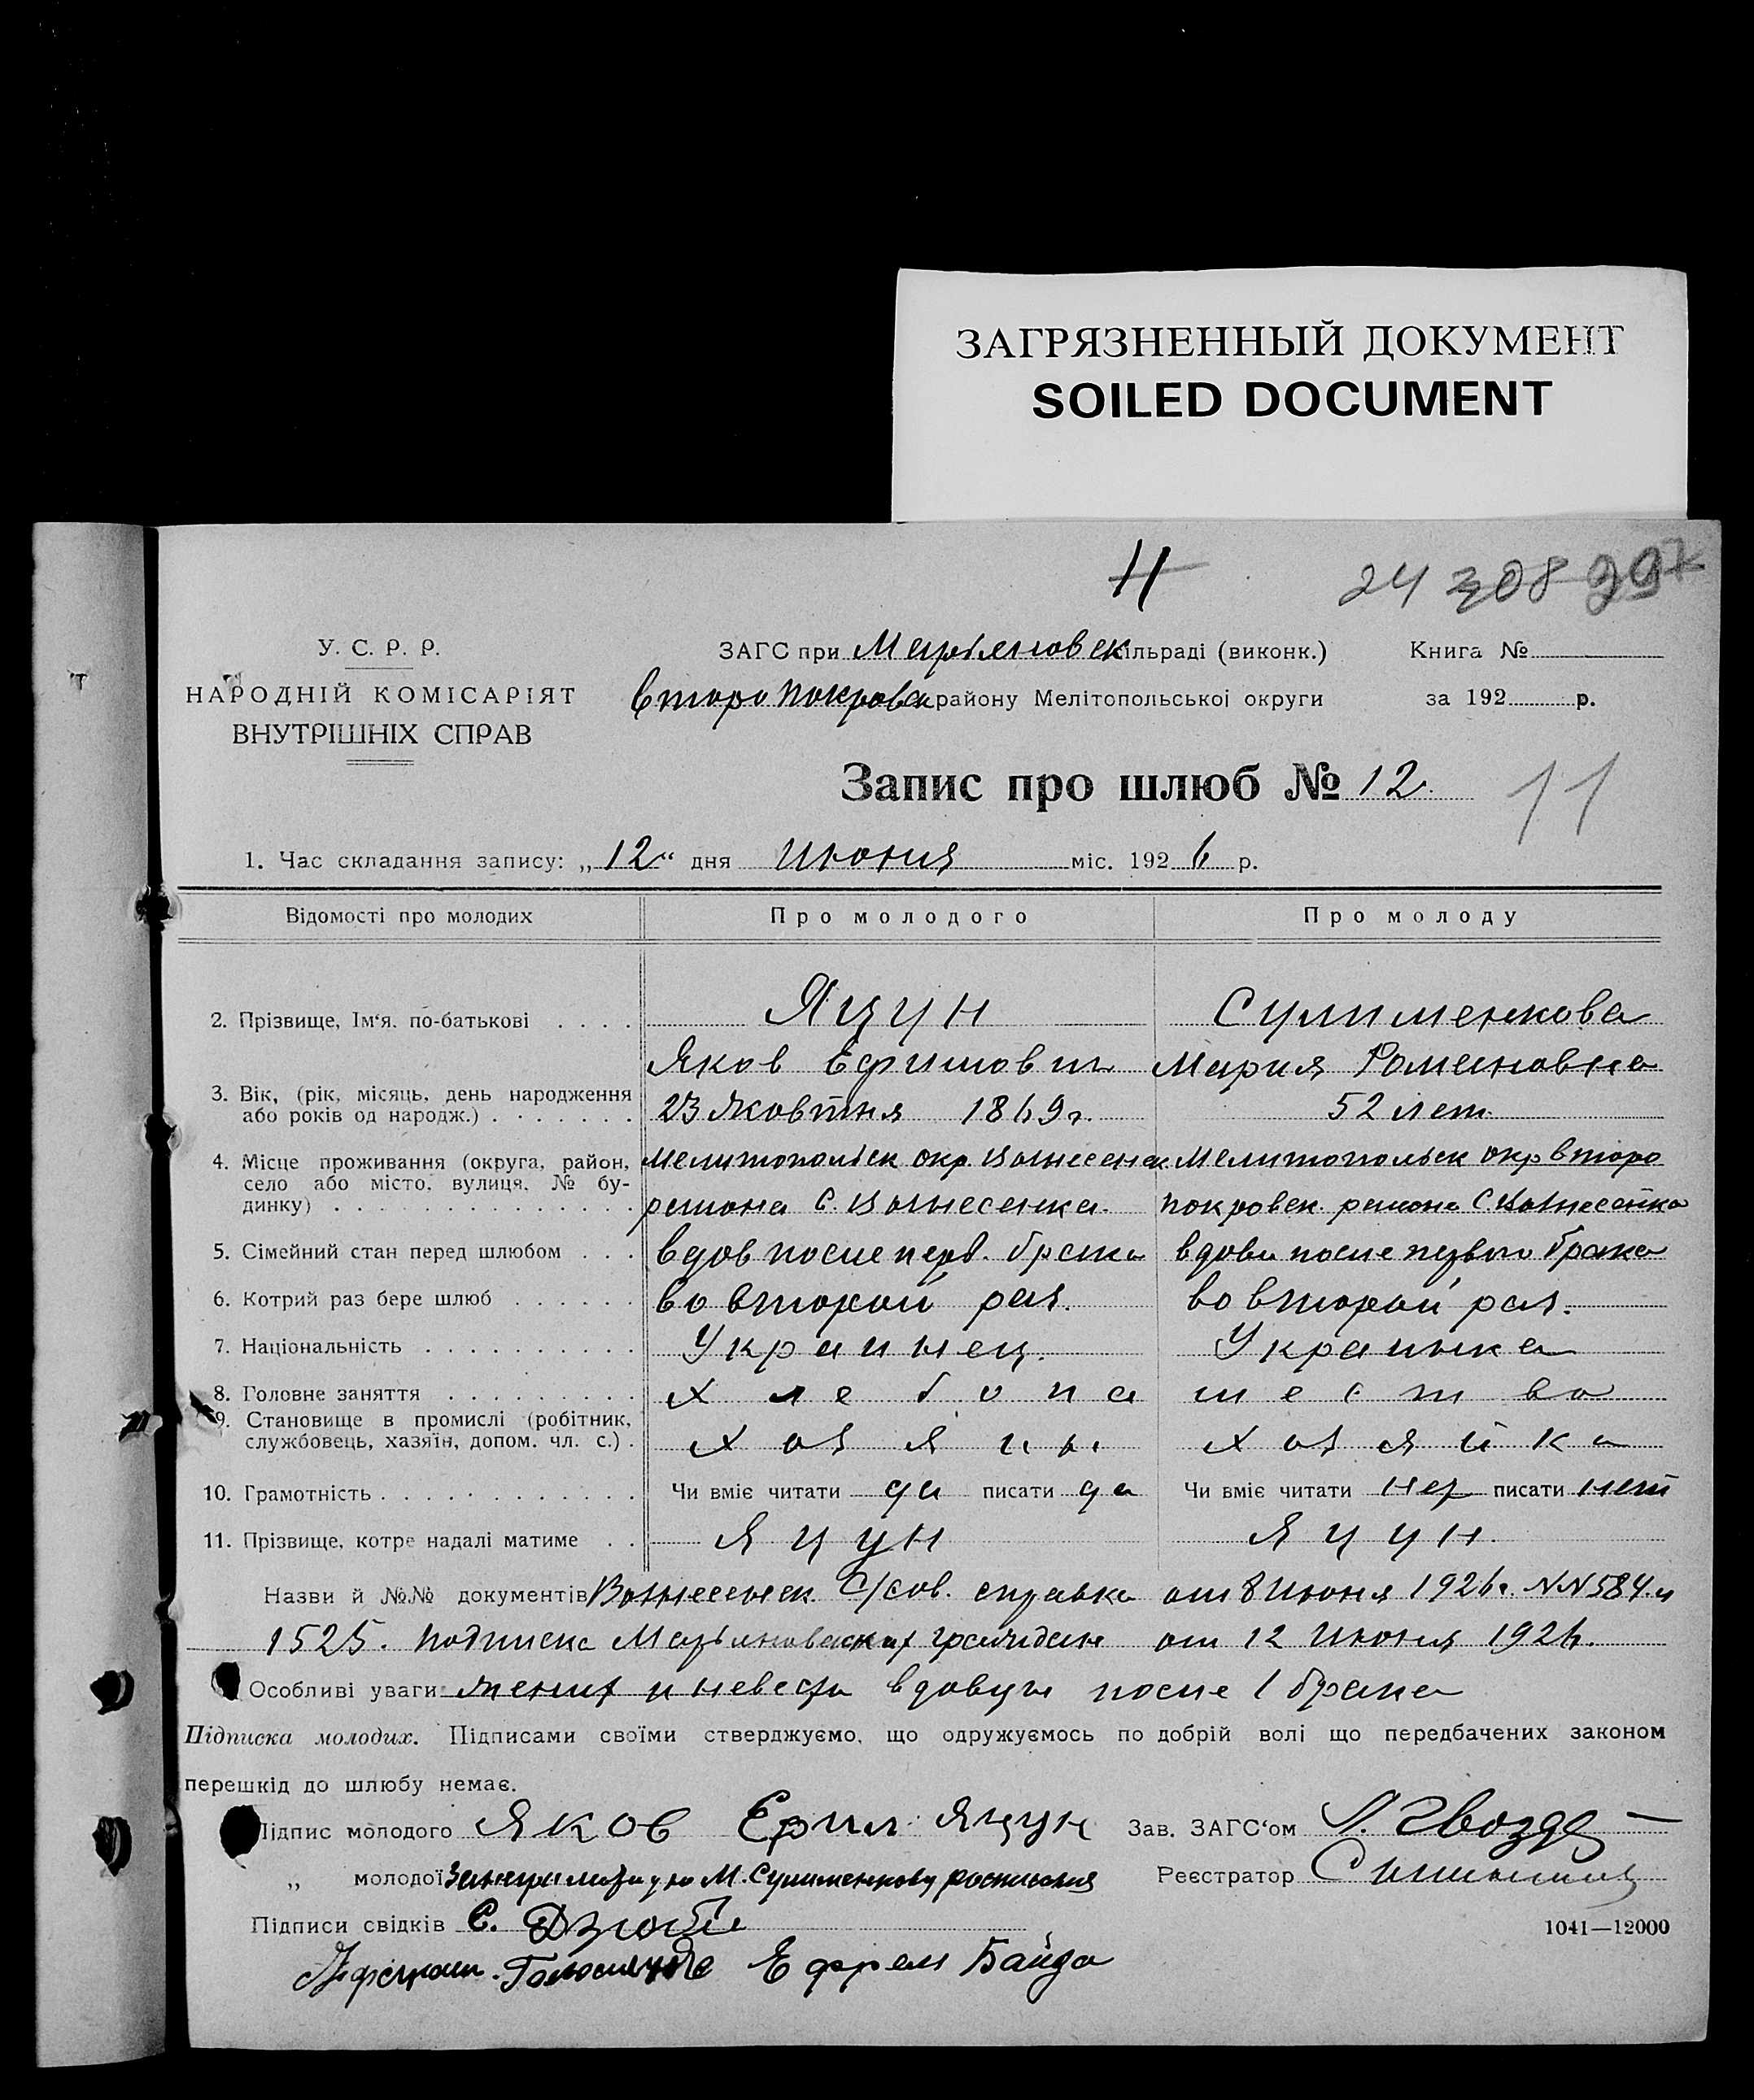 ЗАГРЯЗНЕННЫЙ ДОКУМЕНТ
SOILED DOCUMENT
11
24 308 297
У. С. Р. Р.
НАРОДНІЙ КОМІСАРІЯТ
ВНУТРІШНІХ СПРАВ
ЗАГС при Мар'яновск сільраді (виконк.)
Второпокровск району Мелітопольської округи
Книга №
за 192 р.
Запис про шлюб № 12.
11
1. Час складання запису: „12“ дня Июния міс. 1926 р.
Відомості про молодих Про молодого Про молоду
2. Прізвище, Ім'я, по-батькові Яцун Сулименкова
Яков Ефимович Мария Романовна
3. Вік, (рік, місяць, день народження або років од народж.) 23 Жовтня 1869 г. 52 лет
4. Місце проживання (округа, район, село або місто, вулиця, № будинку) Мелитопольск окр. Вознесенск Мелитопольск окр Второ
района С. Вознесенка. покровск. района С. Вознесенка
5. Сімейний стан перед шлюбом вдов после перв. брака вдова после первого брака
6. Котрий раз бере шлюб во второй раз. во второй раз.
7. Національність Украинец. Украинка
8. Головне заняття хлебопашество
9. Становище в промислі (робітник, службовець, хазяїн, допом. чл. с.) хозяин хозяйка
10. Грамотність Чи вміє читати да писати да Чи вміє читати нет писати нет
11. Прізвище, котре надалі матиме Яцун Яцун.
Назви й №№ документів Вознесенск. С/сов. справка от 8 Июня 1926 г. NN 584 и
1525. подписка Мар'яновских граждан от 12 Июня 1926.
Особливі уваги жених и невеста вдовци после 1 брака
Підписка молодих. Підписами своїми стверджуємо, що одружуємось по добрій волі що передбачених законом
перешкід до шлюбу немає.
Підпис молодого Яков Ефим Яцун Зав. ЗАГС'ом Гвозд
„ молодої За неграмотную М. Сулименкову росписался Реєстратор
Підписи свідків С. Дзюба 1041—12000
Ефрем Байда